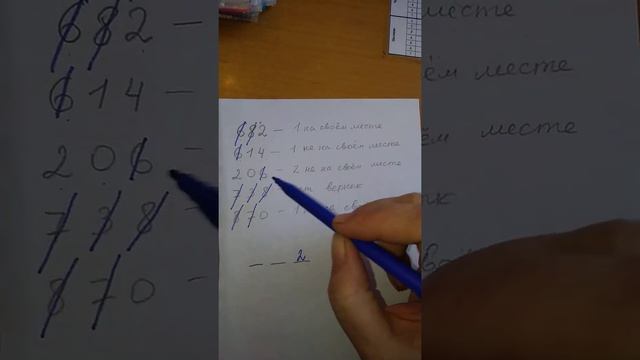 682 – 1 на своём месте
614 – 1 не на своём месте
206 – 2 не на своём месте
738 – верных
870 – 1
_ _ 2